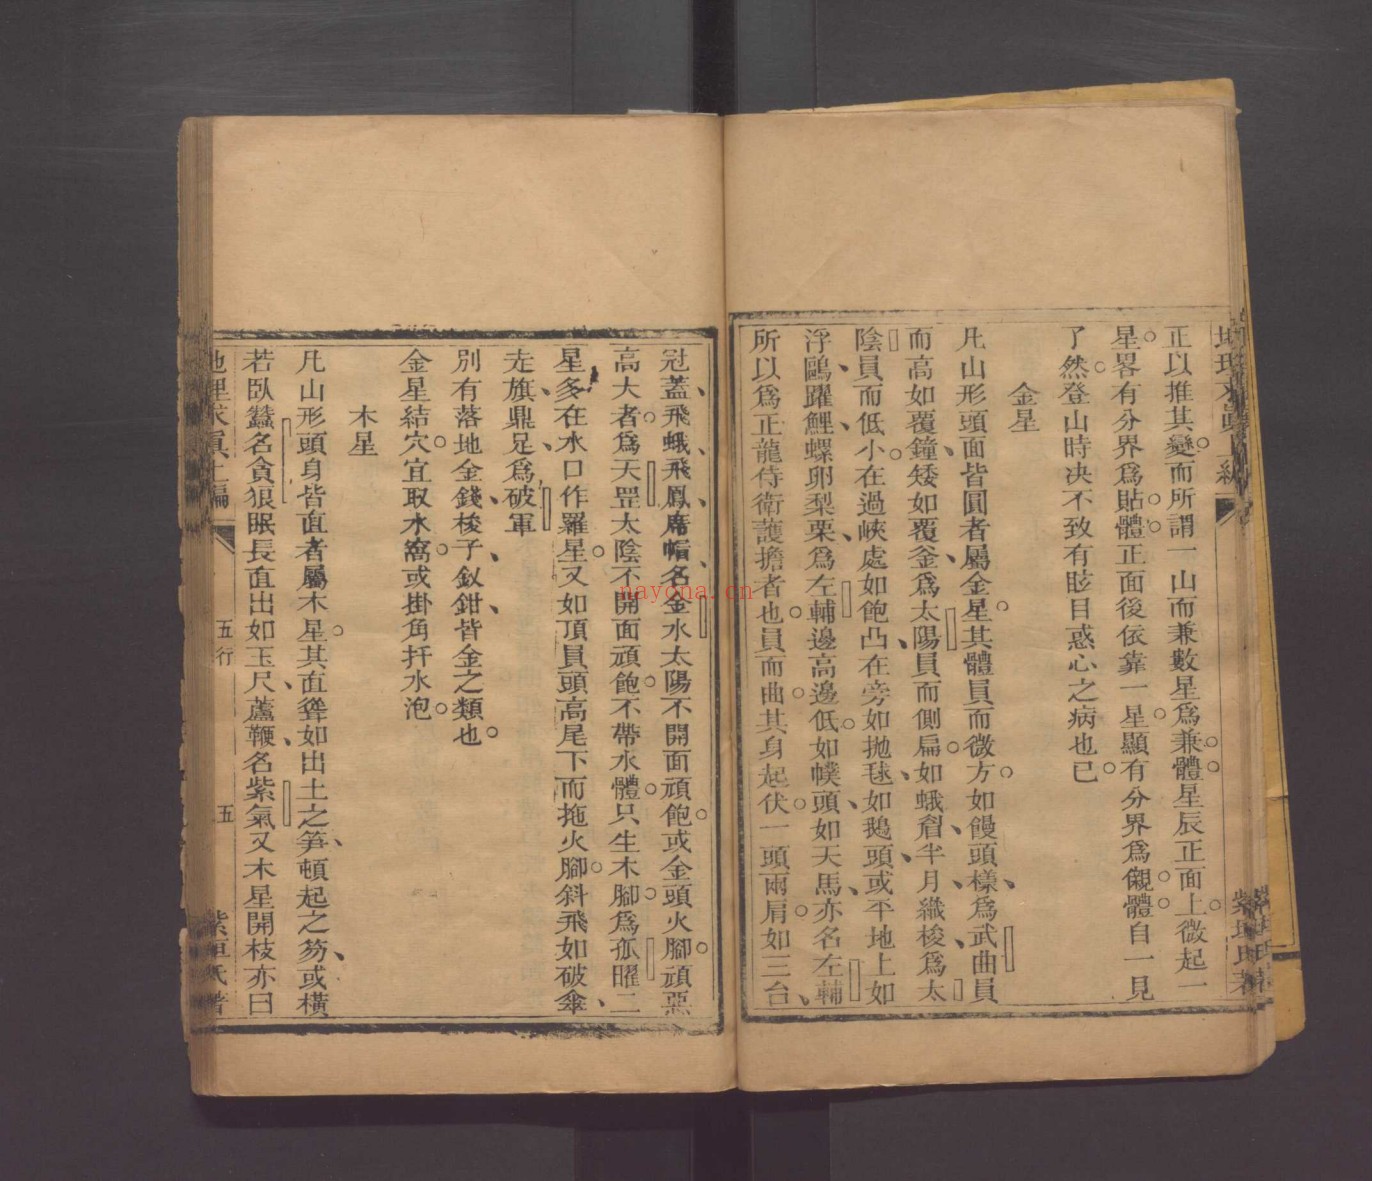 正以推其變而所謂一山而兼數星爲兼體星辰正面上微起一
星畧有分界爲貼體正面後依靠一星顯有分界爲儭體自一見
了然登山時决不致有眩目惑心之病也已
金星
凡山形頭面皆圓者屬金星其體員而微方如饅頭樣爲武曲員
而高如覆鐘矮如覆釜爲太陽員而側扁如蛾眉半月織梭爲太
陰員而低小在過峽處如飽凸在旁如抛毬如鵝頭或平地上如
浮鷗躍鯉螺卵梨栗爲左輔邊高邊低如幞頭如天馬亦名左輔
所以爲正龍侍衛護擔者也員而曲其身起伏一頭兩肩如三台
冠蓋飛蛾飛鳳席帽名金水太陽不開面頑飽或金頭火腳頑惡
高大者爲天罡太陰不開面頑飽不帶水體只生木腳爲孤曜二
星多在水口作羅星又如頂員頭高尾下而拖火腳斜飛如破傘
走旗鼎足爲破軍
別有落地金錢梭子釵鉗皆金之類也
金星結穴宜取水窩或掛角扞水泡
木星
凡山形頭身皆直者屬木星其直聳如出土之笋頓起之笏或橫
若臥蠶名貪狼眠長直出如玉尺蘆鞭名紫氣又木星開枝亦曰
地理求眞上編
五行
五
紫垣氏著
nayona.cn